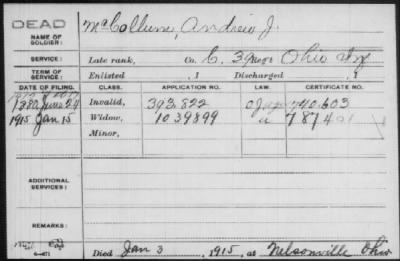 DEAD
NAME OF SOLDIER: McCollum, Andrew J.
SERVICE: Late rank, Co. C, 39 Ohio Inf
TERM OF SERVICE: Enlisted , 1 Discharged , 1
DATE OF FILING. CLASS. APPLICATION NO. LAW. CERTIFICATE NO.
1880 June 24 Invalid, 392,822 740.603
1915 Jan 15 Widow, 1039899 7874
Minor,
ADDITIONAL SERVICES:
REMARKS:
Died Jan 3, 1915, at Nelsonville Ohio